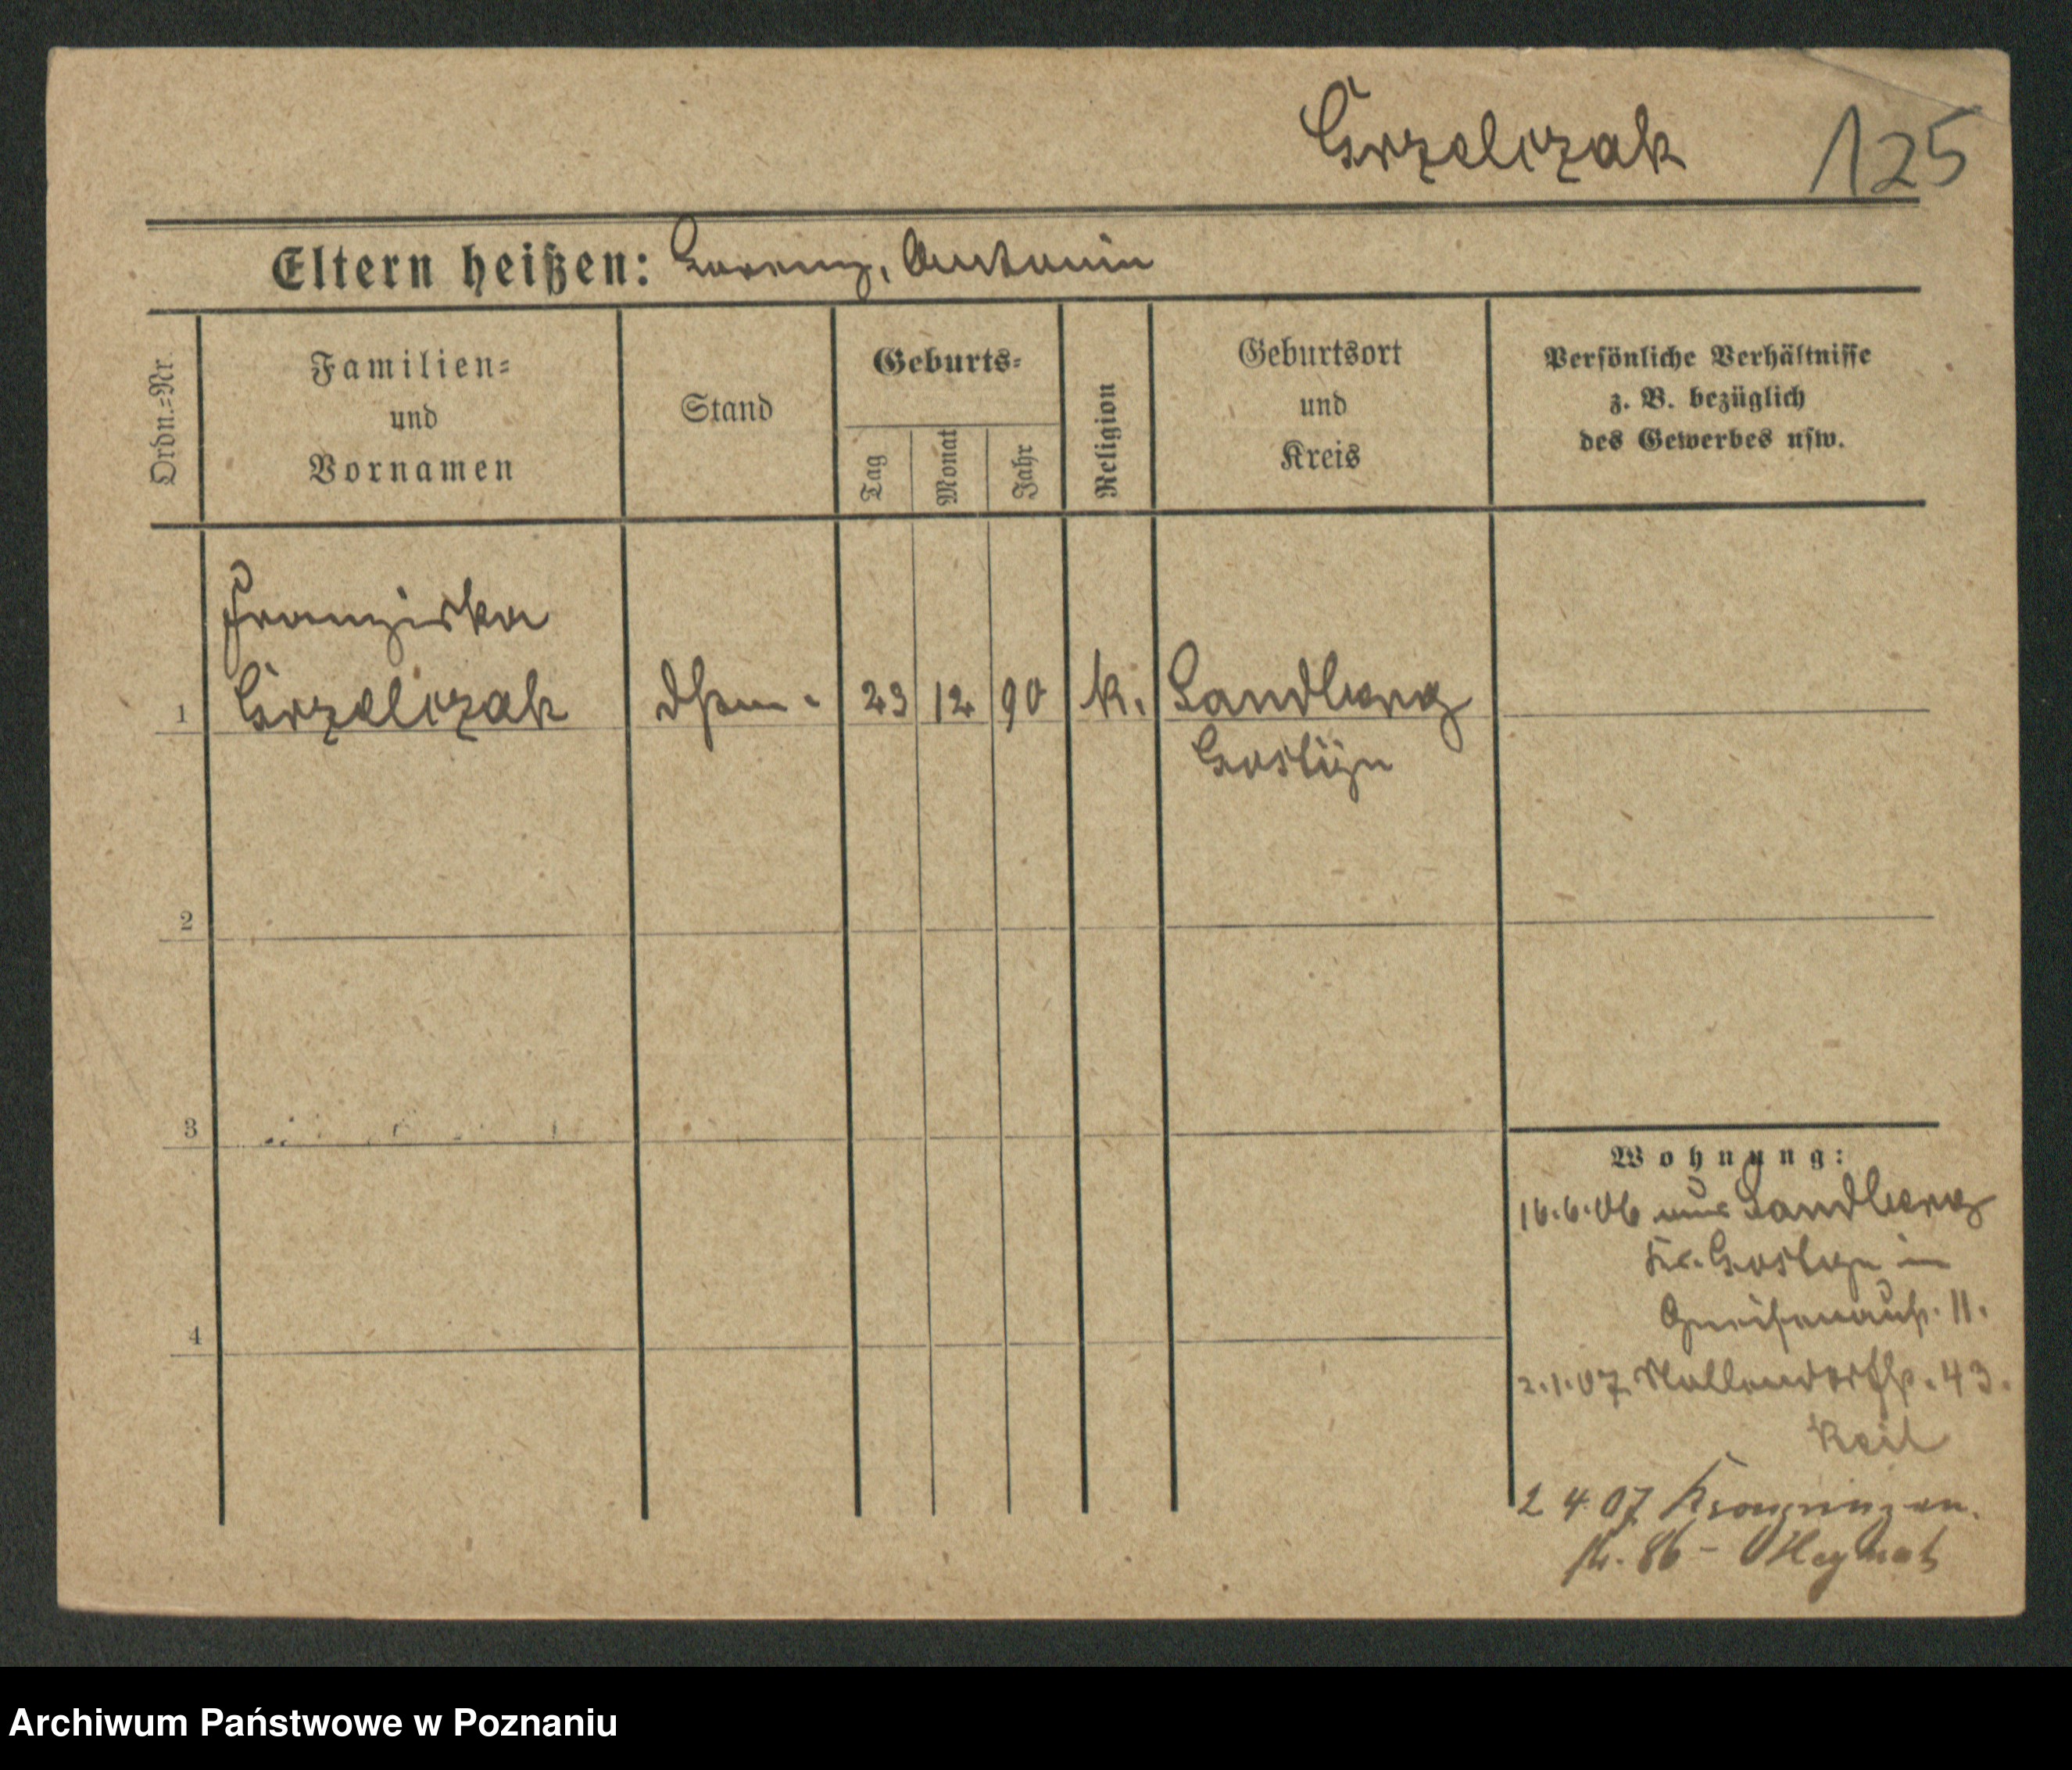 Grzelczak 125
Eltern heißen: Lorenz, Antonin
Ordn.=Nr.
Familien=
und
Vornamen
Stand
Geburts=
Tag
Monat
Jahr
Religion
Geburtsort
und
Kreis
Persönliche Verhältnisse
z. B. bezüglich
des Gewerbes usw.
Franziska
1 Grzelczak 23 12 90 k. Sandberg
Gostÿn
2
3
4
Wohnung:
16.6.06 aus Sandberg
Kr. Gostyn in
Gneisenaustr. 11.
2.1.07 43.
Keil
2 4 07